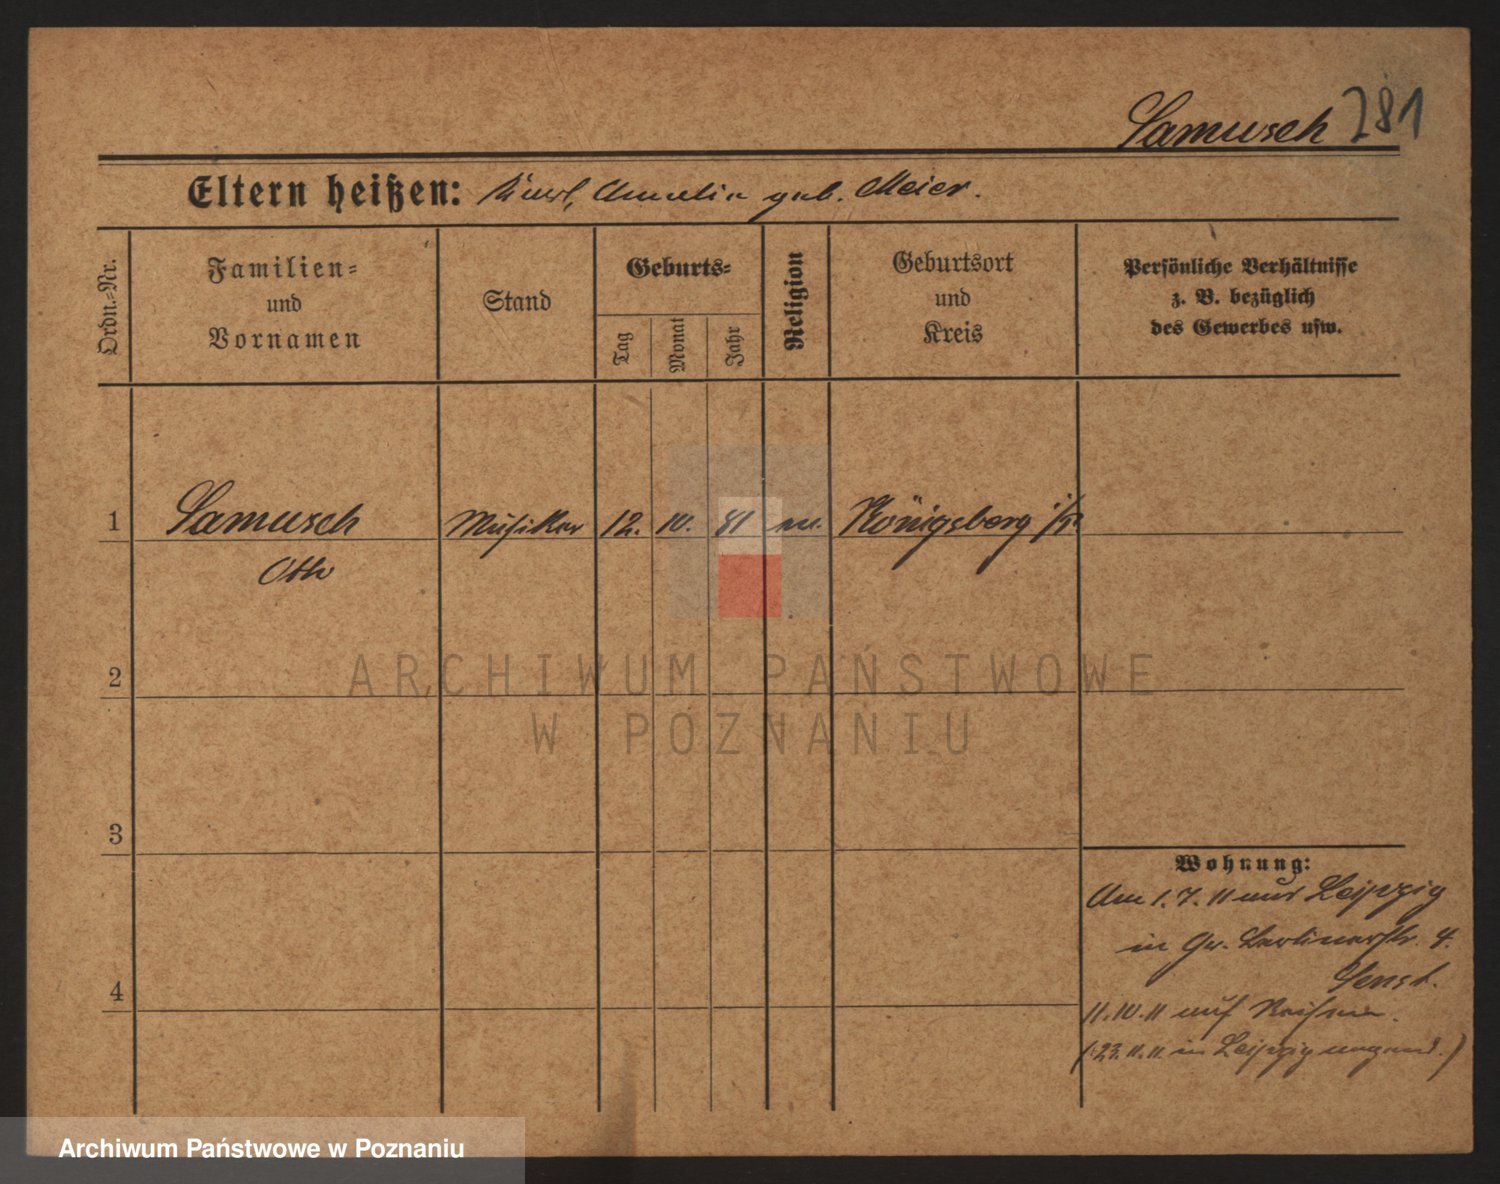 Samusch 281
Eltern heißen: Karl, Amalie geb. Meier.
Ordn.-Nr.
Familien-
und
Vornamen
Stand
Geburts-
Tag
Monat
Jahr
Religion
Geburtsort
und
Kreis
Persönliche Verhältnisse
z. B. bezüglich
des Gewerbes usw.
1 Samusch Musiker 12. 10. 81 ev. Königsberg i/Pr
Otto
2
3
4
Wohnung:
Am 1.7.11 aus Leipzig
in Gr. Berlinerstr. 4.
11.10.11 auf Reisen.
(23.11.11 in Leipzig angem.)
ARCHIWUM PAŃSTWOWE
W POZNANIU
Archiwum Państwowe w Poznaniu